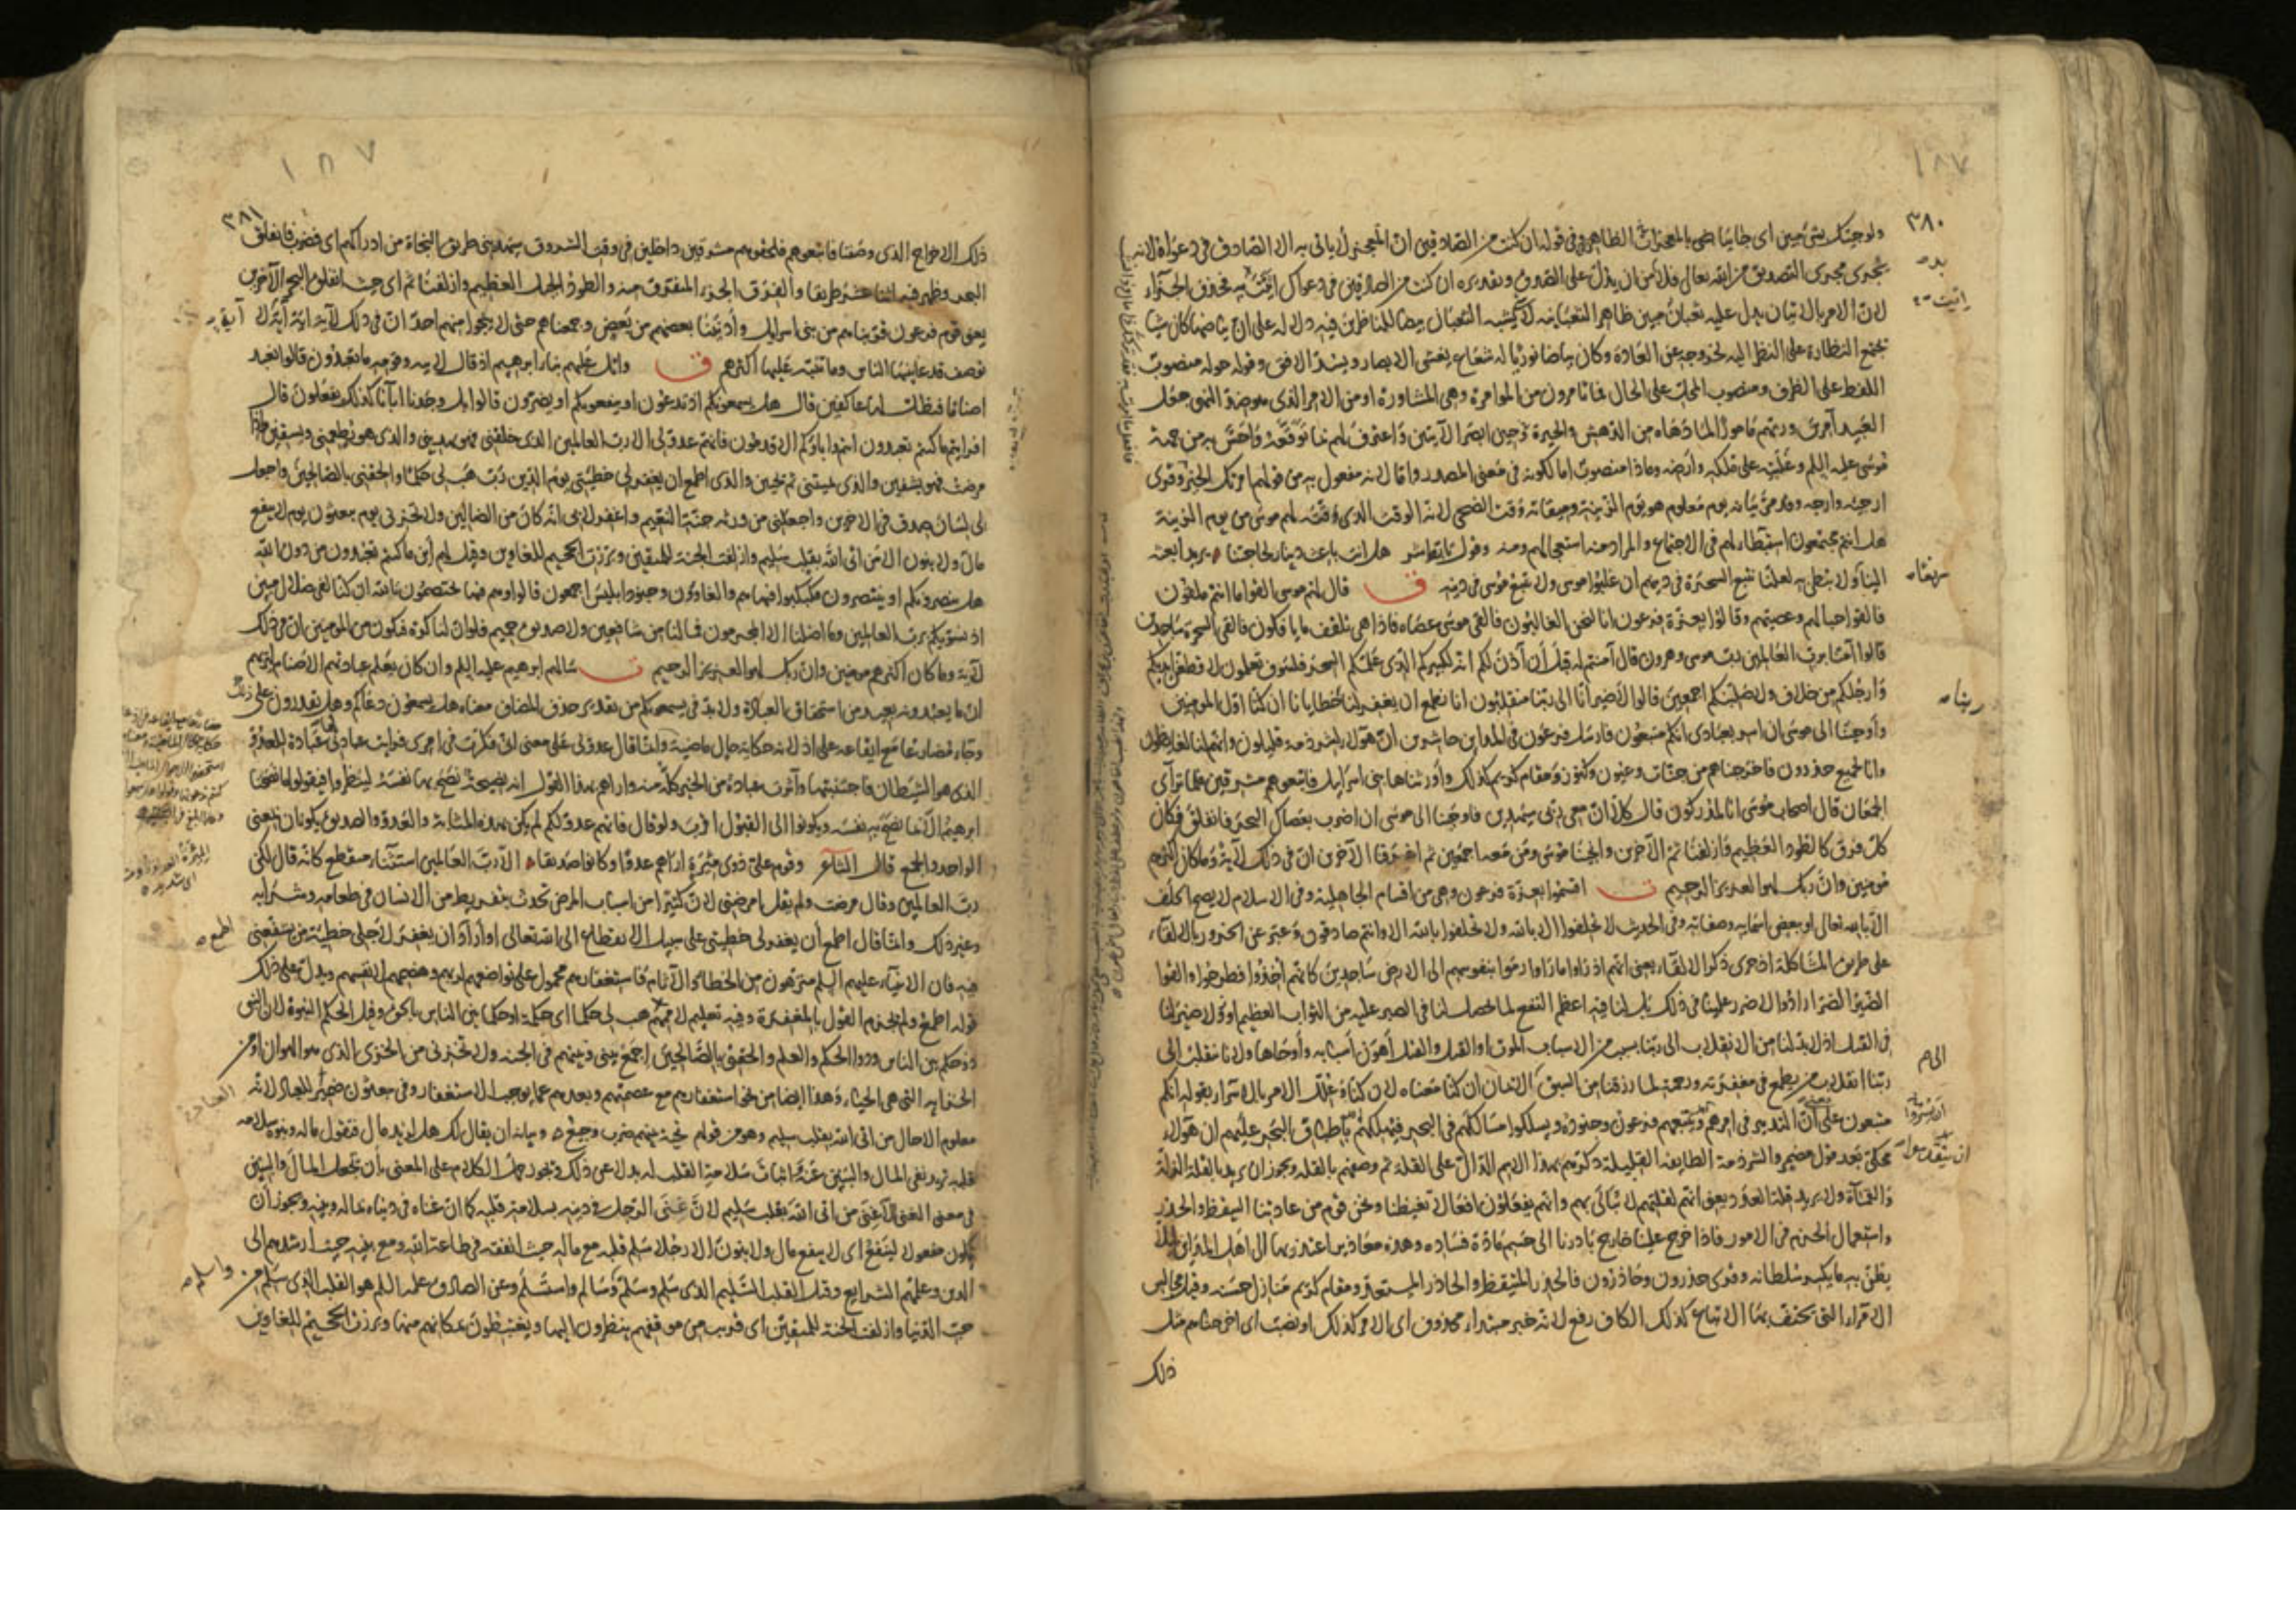 ٣٨٠
ولو جئتك بشئ مبين اى جائيا بالمعجزات الظاهرة وفى قوله ان كنت من الصادقين ان المعجز لا ياتى به الا الصادق فى دعواه لانه
يجرى مجرى التصديق من الله تعالى فلا من ان يدل على الصدق وتقديره ان كنت من الصادقين فى دعواك اتيت به فحذف الجزاء
لان الامر بالاتيان يدل عليه ثعبان مبين ظاهر الثعبانية لا كشبه الثعبان بيضاء للناظرين فيه دلالة على ان بياضها كان شيا
تجتمع النظارة على النظر اليه لخروجه عن العادة وكان بياضا نوريا له شعاع يغشى الابصار ويسد الافق وقوله حوله منصوب
اللفظ على الظرف ومنصوب المحل على الحال فماذا تامرون من الموامرة وهى المشاورة او من الامر الذى هو ضد النهى جعل
العبيد آمرين وربهم مامورا لما دهاه من الدهش والحيرة حين ابصر الآيتين واعترف لهم بما توقعه واحس به من جهة
موسى عليه السلم وغلبته على ملكه وارضه وماذا منصوب اما لكونه فى معنى المصدر واما لانه مفعول به من قولهم امرتك الخير وقرى
ارجئه وارجه وقد مر بيانه يوم معلوم هو يوم الزينة وميقاته وقت الضحى لانه الوقت الذى وقته لهم موسى من يوم الزينة
هل انتم مجتمعون استبطاء لهم فى الاجتماع والمراد منه استعجالهم ومنه وقول تابط شر هل انت باعث دينار لحاجتنا يريد ابعثه
الينا ولا تبطئ به لعلنا نتبع السحرة فى دينهم ان غلبوا موسى ولا نتبع موسى فى دينه ق قال لهم موسى القوا ما انتم ملقون
فالقوا حبالهم وعصيهم وقالوا بعزة فرعون انا لنحن الغالبون فالقى موسى عصاه فاذا هى تلقف ما يافكون فالقى السحرة ساجدين
قالوا آمنا برب العالمين رب موسى وهرون قال آمنتم له قبل ان آذن لكم انه لكبيركم الذى علمكم السحر فلسوف تعلمون لاقطعن ايديكم
وارجلكم من خلاف ولاصلبنكم اجمعين قالوا لا ضير انا الى ربنا منقلبون انا نطمع ان يغفر لنا خطايانا ان كنا اول المومنين
واوحينا الى موسى ان اسر بعبادى انكم متبعون فارسل فرعون فى المداين حاشرين ان هؤلاء لشرذمة قليلون وانهم لنا لغايظون
وانا لجميع حذرون فاخرجناهم من جنات وعيون وكنوز ومقام كريم كذلك واورثناها بنى اسرايل فاتبعوهم مشرقين فلما ترآى
الجمعان قال اصحاب موسى انا لمدركون قال كلا ان معى ربى سيهدين فاوحينا الى موسى ان اضرب بعصاك البحر فانفلق فكان
كل فرق كالطود العظيم وازلفنا ثم الآخرين وانجينا موسى ومن معه اجمعين ثم اغرقنا الآخرين ان فى ذلك لآية وما كان اكثرهم
مومنين وان ربك لهو العزيز الرحيم ق اقسموا بعزة فرعون وهى من اقسام الجاهلية وفى الاسلام لا يصح الحلف
الا بالله تعالى او ببعض اسمايه وصفاته وفى الحديث لا تحلفوا الا بالله ولا تحلفوا بالله الا وانتم صادقون وعبر عن الخرور بالالقاء
على طريق المشاكلة اذ جرى ذكر الالقاء يعنى انهم اذ راوا ما راوا رموا بنفوسهم الى الارض ساجدين كانهم اخذوا فطرحوا والقوا
الضير الضر ارادوا لا ضرر علينا فى ذلك بل لنا فيه اعظم النفع لما يحصل لنا فى الصبر عليه من الثواب العظيم او لا ضير لنا
فى القتل اذ لا بد لنا من الانقلاب الى ربنا بسبب من الاسباب الموت او القتل والقتل اهون اسبابه وارجاها ولانا ننقلب الى
ربنا انقلاب من يطمع فى مغفرته ورحمته لما رزقنا من السبق الى الايمان ان كنا معناه لان كنا وعلل الامر بالاسراء بقوله انكم
متبعون على ان التدبير فى امرهم ان يتبعهم فرعون وجنوده ويسلكوا مسالكهم فى البحر فيهلكهم باطباق البحر عليهم ان هؤلاء
محكى بعد قول مضمر والشرذمة الطايفة القليلة ذكرهم بهذا الاسم الدال على القلة ثم وصفهم بالقلة ويجوز ان يريد بالقلة الذلة
والقماءة ولا يريد قلة العدد ويعنى انهم لقلتهم لا يبالى بهم وانهم يفعلون افعالا تغيظنا ونحن قوم من عادتنا التيقظ والحذر
واستعمال الحزم فى الامور فاذا خرج علينا خارج بادرنا الى حسم مادة فساده وهذه معاذير اعتذر بها الى اهل المداين ليلا
يظن به ما يكسر سلطانه وقرى حذرون وحاذرون فالحذر المتيقظ والحاذر المستعد ومقام كريم منازل حسنة وقيل مجالس
الامراء التى تحتف بها الاتباع كذلك الكاف رفع لانه خبر مبتداء محذوف اى الامر كذلك او نصب اى اخرجناهم مثل
ذلك
٣٨١
ذلك الاخراج الذى وصفنا فاتبعوهم فلحقوهم مشرقين داخلين فى وقت الشروق سيهدينى طريق النجاة من ادراكهم اى فضرب فانفلق
البحر وظهر فيه اثنا عشر طريقا والفرق الجزء المتفرق منه والطود الجبل العظيم وازلفنا ثم اى حيث انفلق البحر الآخرين
يعنى قوم فرعون قربناهم من بنى اسرايل وادنينا بعضهم من بعض وجمعناهم حتى لا ينجوا منهم احد ان فى ذلك لآية اية آية لا
توصف قد عاينها الناس وما تنبه عليها اكثرهم ق واتل عليهم نبا ابرهيم اذ قال لابيه وقومه ما تعبدون قالوا نعبد
اصناما فنظل لها عاكفين قال هل يسمعونكم اذ تدعون او ينفعونكم او يضرون قالوا بل وجدنا آباءنا كذلك يفعلون قال
افرايتم ما كنتم تعبدون انتم وآباؤكم الاقدمون فانهم عدو لى الا رب العالمين الذى خلقنى فهو يهدين والذى هو يطعمنى ويسقين واذا
مرضت فهو يشفين والذى يميتنى ثم يحيين والذى اطمع ان يغفر لى خطيئتى يوم الدين رب هب لى حكما والحقنى بالصالحين واجعل
لى لسان صدق فى الآخرين واجعلنى من ورثة جنة النعيم واغفر لابى انه كان من الضالين ولا تخزنى يوم يبعثون يوم لا ينفع
مال ولا بنون الا من اتى الله بقلب سليم وازلفت الجنة للمتقين وبرزت الجحيم للغاوين وقيل لهم اين ما كنتم تعبدون من دون الله
هل ينصرونكم او ينتصرون فكبكبوا فيها هم والغاوون وجنود ابليس اجمعون قالوا وهم فيها يختصمون تالله ان كنا لفى ضلال مبين
اذ نسويكم برب العالمين وما اضلنا الا المجرمون فما لنا من شافعين ولا صديق حميم فلو ان لنا كرة فنكون من المومنين ان فى ذلك
لآية وما كان اكثرهم مومنين وان ربك لهو العزيز الرحيم ق سالهم ابرهيم عليه السلم وان كان يعلم عبادتهم الاصنام ليريهم
ان ما يعبدونه بعيد من استحقاق العبادة ولا بد فى يسمعونكم من تقدير حذف المضاف معناه هل يسمعون دعاءكم وهل يقدرون على ذلك
وجاء مضارعا مع ايقاعه على اذ لانه حكاية حال ماضية وانما قال عدو لى على معنى انى فكرت فى امرى فرايت عبادتى لها عبادة للعدو
الذى هو الشيطان فاجتنبتها وآثرت عبادة من الخير كله منه واراهم بهذا القول انه نصيحة نصح بها نفسه لينظروا فيقولوا ما نصحنا
ابرهيم الا بما نصح به نفسه ويكونوا الى القبول اقرب ولو قال فانهم عدو لكم لم يكن بهذه المثابة والعدو والصديق يكونان بمعنى
الواحد والجمع قال الشاعر وقوم على ذوى مئرة اراهم عدوا وكانوا صديقا الا رب العالمين استثناء منقطع كانه قال لكن
رب العالمين وقال مرضت ولم يقل امرضنى لان كثيرا من اسباب المرض تحدث بتفريط من الانسان فى طعامه وشرابه
وغير ذلك وانما قال اطمع ان يغفر لى خطيئتى على سبيل الانقطاع الى الله تعالى او اراد ان يغفر لاجلى خطيئة من يشفعنى
فيه فان الانبياء عليهم السلم منزهون من الخطايا والآثام فاستغفارهم محمول على تواضعهم لربهم وهضمهم لانفسهم ويدل على ذلك
قوله اطمع ولم يجزم القول بالمغفرة وفيه تعليم لاممهم هب لى حكما اى حكمة او حكما بين الناس بالحق وقيل الحكم النبوة لان النبى
ذو حكم بين الناس وذو الحكم والعلم والحقنى بالصالحين اجمع بينى وبينهم فى الجنة ولا تخزنى من الخزى الذى هو الهوان او من
الخزاية التى هى الحياء وهذا ايضا من نحو استغفارهم مع عصمتهم وبعدهم عما يوجب الاستغفار وفى يبعثون ضمير للعباد لانه
معلوم الا حال من اتى الله بقلب سليم وهو من قولهم تحية بينهم ضرب وجيع وبيانه ان يقال لك هل لزيد مال فتقول ماله وبنوه سلامة
قلبه تريد نفى المال والبنين عنه واثبات سلامة القلب له بدلا عن ذلك ويجوز حمل الكلام على المعنى بان يجعل المال والبنين
فى معنى الغنى الا غنى من اتى الله بقلب سليم لان غنى الرجل فى دينه بسلامة قلبه كما ان غناه فى دنياه بماله وبنيه ويجوز ان
يكون مفعولا لينفع اى لا ينفع مال ولا بنون الا رجلا سلم قلبه مع ماله حيث انفقه فى طاعة الله ومع بنيه حيث ارشدهم الى
الدين وعلمهم الشرايع وقيل القلب السليم الذى سلم وسلم وسالم واستسلم وعن الصادق عليه السلم هو القلب الذى سلم من
حب الدنيا وازلفت الجنة للمتقين اى قربت من موقفهم ينظرون اليها ويغتبطون بمكانهم منها وبرزت الجحيم للغاوين